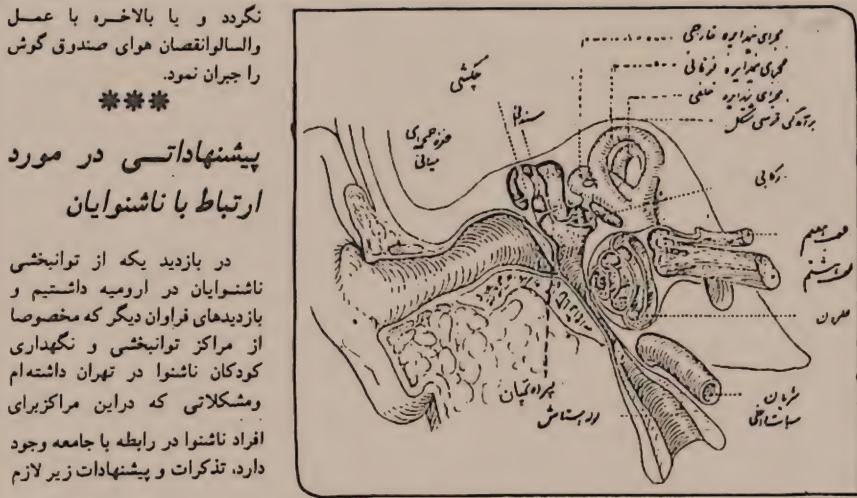 نگردد و یا بالاخره با عمل
والسالوانقصان هوای صندوق گوش
را جبران نمود.
***
پیشنهاداتی در مورد
ارتباط با ناشنوایان
در بازدید یکه از توانبخشی
ناشنوایان در ارومیه داشتیم و
بازدیدهای فراوان دیگر که مخصوصا
از مراکز توانبخشی و نگهداری
کودکان ناشنوا در تهران داشته‌ام
ومشکلاتی که دراین مراکزبرای
افراد ناشنوا در رابطه با جامعه وجود
دارد، تذکرات و پیشنهادات زیر لازم
مجرای نیمدایره خارجی
مجرای نیمدایره فوقانی
مجرای نیمدایره خلفی
برآمدگی قرصی شکل
چکشی
سندانی
میانی
رکابی
عصب هفتم
عصب هشتم
حلزون
شریان
سبات داخلی
پرده تمپان
لوله استاش